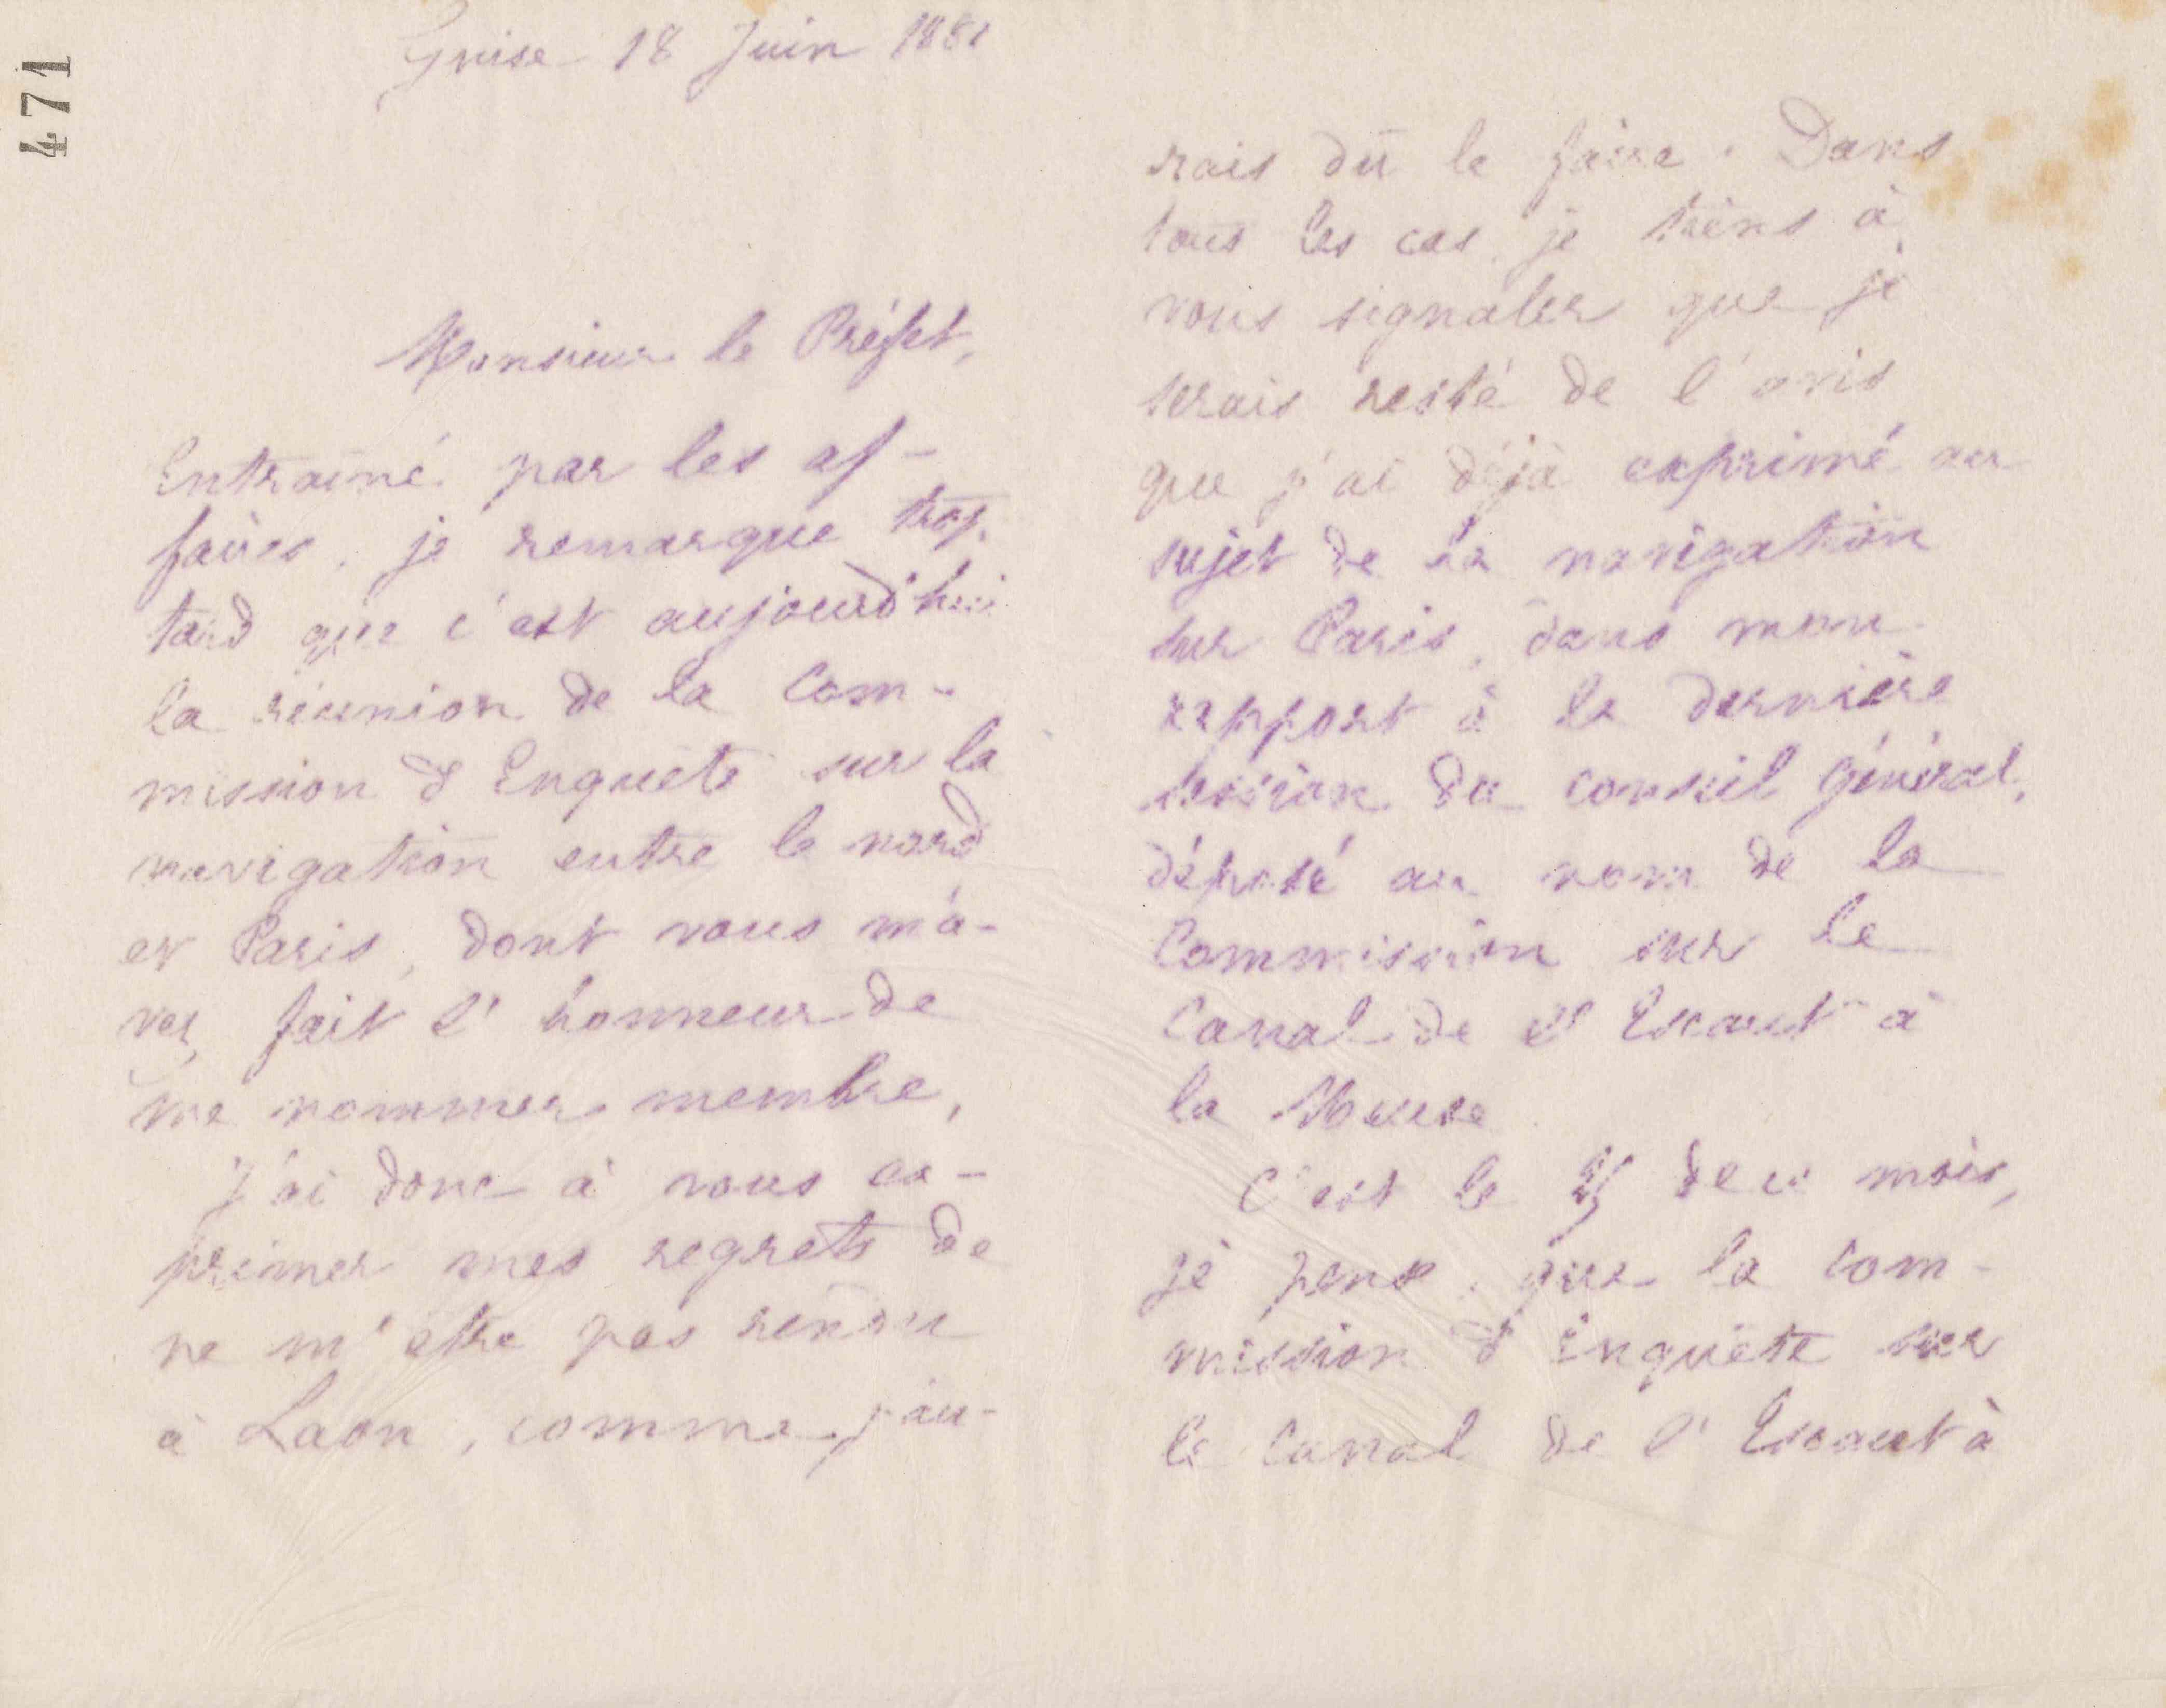 471
Guise 18 Juin 1881
Monsieur le Préfet,
Entrainé par les af-
faires, je remarque trop
tard que c'est aujourd'hui
la réunion de la Com-
mission d'Enquête sur la
navigation entre le nord
et Paris, dont vous m'a-
vez fait l'honneur de
me nommer membre,
J'ai donc à vous ex-
primer mes regrets de
ne m'être pas rendu
à Laon, comme j'au-
rais dû le faire. Dans
tous les cas, je tiens à
vous signaler que je
serais resté de l'avis
que j'ai déjà exprimé au
sujet de la navigation
sur Paris, dans mon
rapport à la dernière
session du conseil général,
déposé au nom de la
Commission sur le
Canal de l'Escaut à
la Meuse
C'est le 25 de ce mois,
je pense, que la com-
mission d'enquête sur
le canal de l'Escaut à